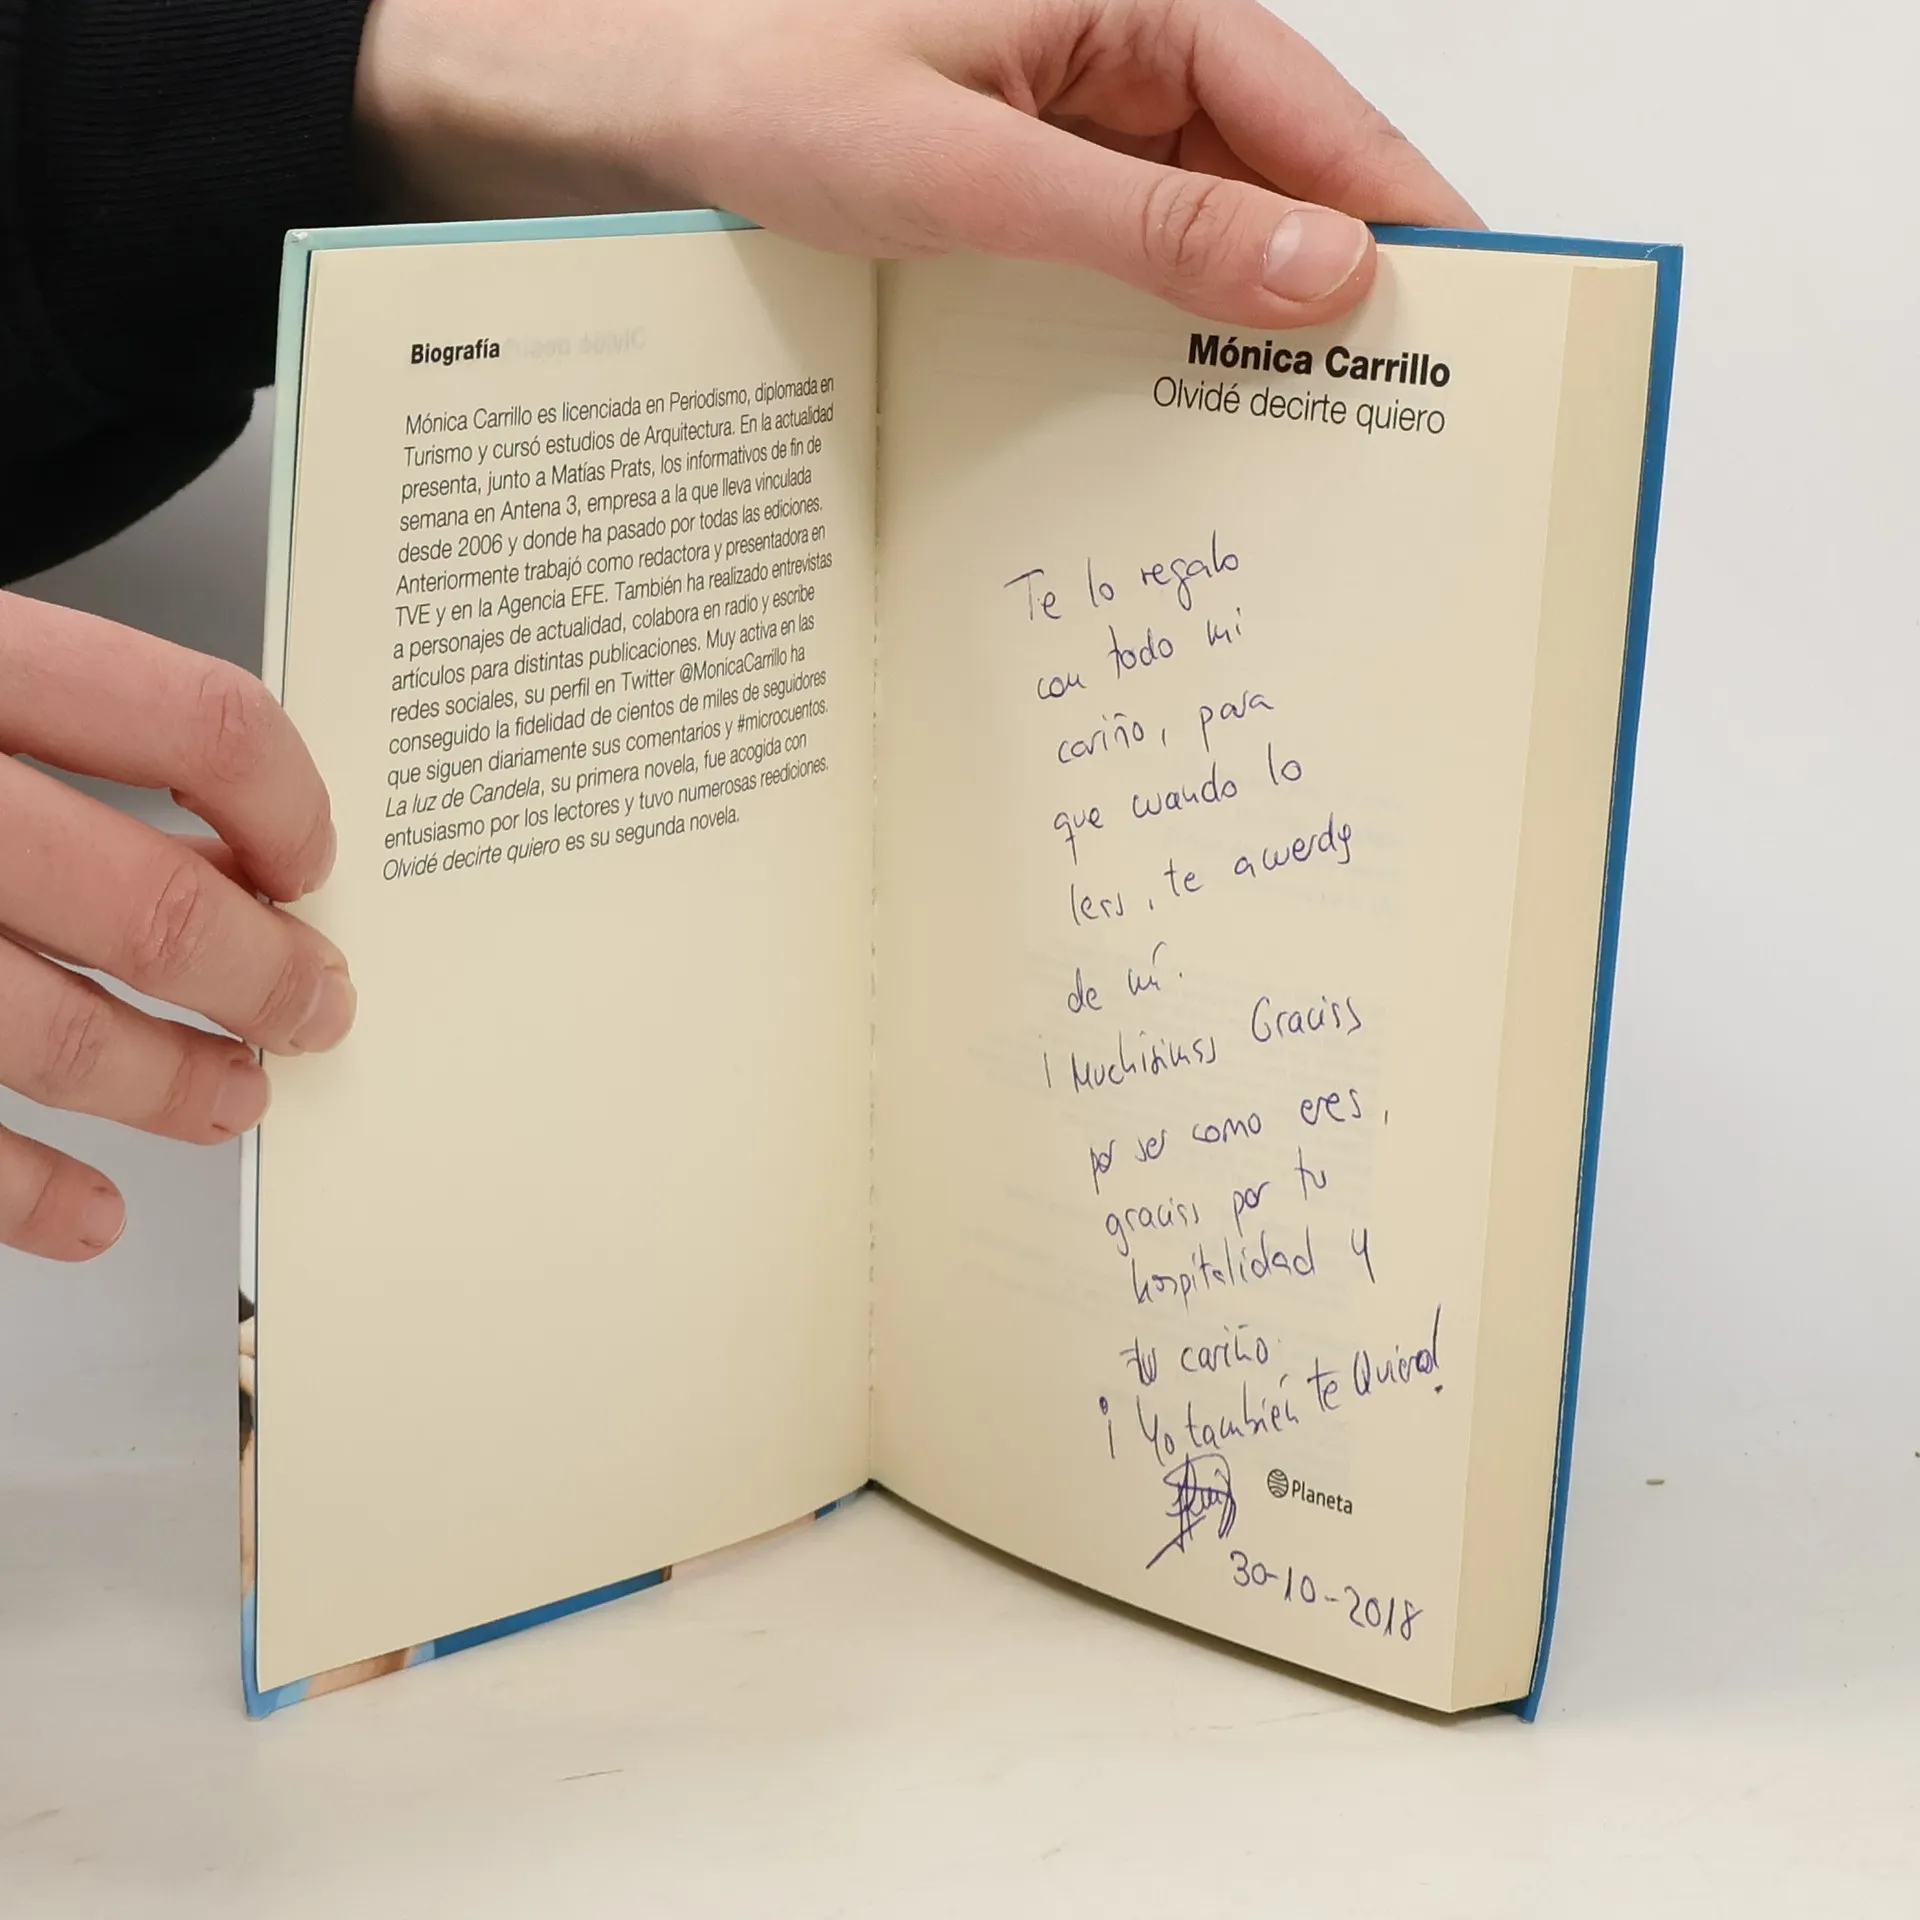 Biografía
Mónica Carrillo es licenciada en Periodismo, diplomada en
Turismo y cursó estudios de Arquitectura. En la actualidad
presenta, junto a Matías Prats, los informativos de fin de
semana en Antena 3, empresa a la que lleva vinculada
desde 2006 y donde ha pasado por todas las ediciones.
Anteriormente trabajó como redactora y presentadora en
TVE y en la Agencia EFE. También ha realizado entrevistas
a personajes de actualidad, colabora en radio y escribe
artículos para distintas publicaciones. Muy activa en las
redes sociales, su perfil en Twitter @MonicaCarrillo ha
conseguido la fidelidad de cientos de miles de seguidores
que siguen diariamente sus comentarios y #microcuentos.
La luz de Candela, su primera novela, fue acogida con
entusiasmo por los lectores y tuvo numerosas reediciones.
Olvidé decirte quiero es su segunda novela.
Mónica Carrillo
Olvidé decirte quiero
Te lo regalo
con todo mi
cariño, para
que cuando lo
leas, te acuerdes
de mí.
¡Muchísimas Gracias
por ser como eres,
gracias por tu
hospitalidad y
tu cariño.
¡Yo también te Quiero!
Planeta
30-10-2018